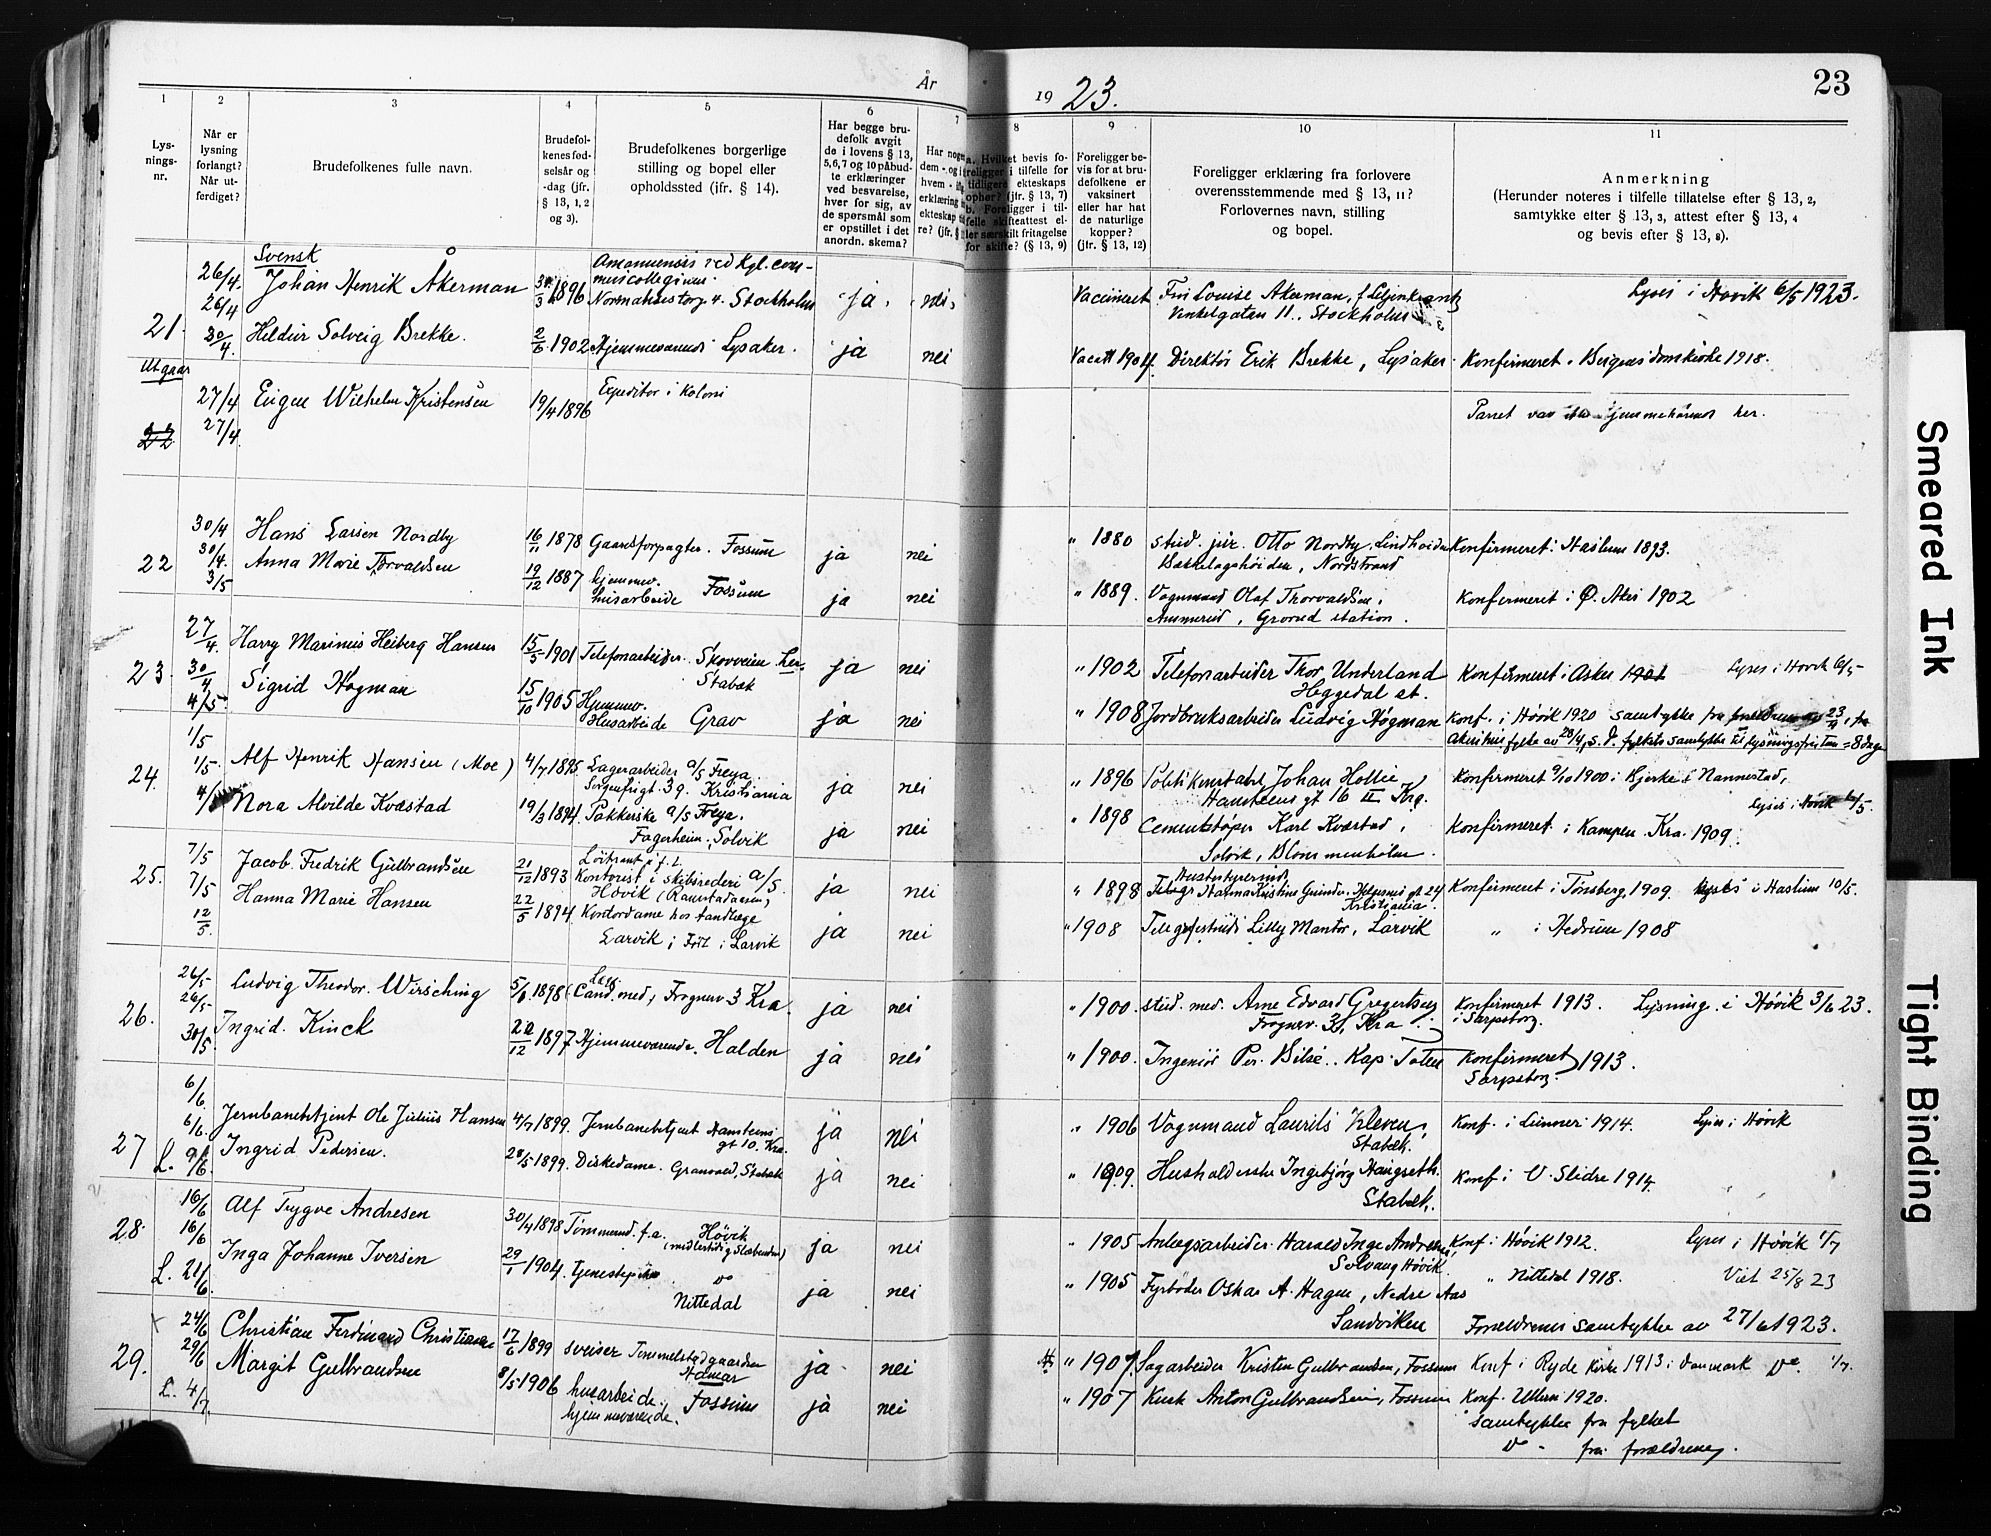 År 19 23.
23
1
2
3
4
5
6
7
8
9
10
11
Lys-
nings-
nr.
Når er
lysning
forlangt?
Når ut-
ferdiget?
Brudefolkenes fulle navn.
Brudefol-
kenes fød-
selsår og
-dag (jfr.
§ 13, 1, 2
og 3).
Brudefolkenes borgerlige
stilling og bopel eller
opholdssted (jfr. § 14).
Har begge bru-
defolk avgit
de i lovens § 13,
5,6,7 og 10 påbud-
te erklæringer
ved besvarelse,
hver for sig, av
de spørsmål som
er opstillet i det
anordn. skema?
Har nogen
dem - og i
hvem -
erklæring
ekteskap
re? (jfr. §
a. Hvilket bevis fo-
religger i tilfelle for
tidligere ekteskaps
ophør? (jfr. § 13, 7)
b. Foreligger i til-
felle skifteattest el-
ler særskilt fritagelse
for skifte? (§ 13, 9)
Foreligger be-
vis for at bru-
defolkene er
vaksinert
eller har hat
de naturlige
kopper?
(jfr. § 13, 12)
Foreligger erklæring fra forlovere
overensstemmende med § 13, 11?
Forlovernes navn, stilling
og bopel.
Anmerkning
(Herunder noteres i tilfelle tillatelse efter § 13, 2,
samtykke efter § 13, 3, attest efter § 13, 4
og bevis efter § 13, 8).
21.
26/4
26/4
30/4.
Svensk
Johan Henrik Åkerman
1896
Amanuensis ved Kgl. com-
mercollegium.
Normalmstorg 4. Stockholm
ja
nei
Vaccineret
Fru Louise Akerman, f. Liljenkrantz
Vinkelgatan 11. Stockholm
Lyses i Høvik 6/5 1923.
Heldur Solveig Brekke.
2/6 1902
Hjemmeværende Lysaker.
ja
nei
Vacatt 1904.
Direktør Erik Brekke, Lysaker.
Konfirmeret i Bergens domkirke 1918.
Utgaar
22
27/4
27/4
Eugen Wilhelm Kristensen
19/4 1896
Expeditør i koloni
Parret var ikke hjemmehørende her.
22
30/4
30/4.
3/5
Hans Larsen Nordby
16/11 1878
Gaardsforpagter. Fossum
ja
nei
" 1880
stud. jur. Otto Nordby, Lindheim
Bækkelagshøiden, Nordstrand
Konfirmeret i Haslum 1893.
Anna Marie Torvaldsen
19/12 1887
hjemmev.
husarbeide Fossum
ja
nei
" 1889.
Vognmand Olaf Thorvaldsen,
Ammerud, Grorud station.
Konfirmeret i Ø. Aker 1902
23.
27/4.
30/4
4/5
Harry Marinus Heiberg Hansen
15/5 1901
Telefonarbeider. Skovveien her
Stabæk
ja
nei
" 1902
Telefonarbeider Thor Underland
Heggedal st.
Konfirmeret i Asker 1901
Lyses i Høvik 6/5
Sigrid Høgman
15/10 1905
Hjemmev.
Husarbeide Grav
ja
nei
" 1908
Jordbruksarbeider Ludvig Høgman
Konf. i Høvik 1920 samtykke fra forældrene av 23/4, fra
Akershus fylke av 28/4, s. d. fylkets samtykke til lysningsfristen = 8 dage
24.
1/5
1/5.
4/5
Alf Henrik Hansen (Moe)
4/7 1895
Lagerarbeider a/s Freya.
Sorgenfrigt. 39. Kristiania
ja
nei
" 1896
Politikonstabel Johan Hollie
Hansteens gt 16 II Krg.
Konfirmeret 9/10 1900 i Bjerke i Nannestad,
Nora Alvilde Kvæstad
19/3 1894
Pakkerske a/s Freya.
Fagerheim, Solvik
ja
nei
" 1898
Cementstøper Karl Kværtad,
Solvik, Blommenholm.
Konfirmeret i Kampen Kra. 1909.
Lyses i Høvik 6/5.
25.
7/5
7/5
12/5.
Jacob Fredrik Gulbrandsen
21/12 1893
Løitnant i f. 2
Kontorist i skibsrederi a/s.
Høvik (Ramstadaasen)
ja
nei
" 1898
Husbestyrerinde
Kristiania
Konfirmeret i Tønsberg 1909.
Lyses i Haslum 10/5.
Hanna Marie Hansen
22/5 1894
Kontordame hos tandlæge
Larvik i Larvik
ja
nei
" 1908
Lilly Mantor, Larvik
" i Hedrum 1908
26.
26/5
26/5
30/5
Ludvig Theodor Wirsching
5/6 1898
Cand. med., Frognerv. 3 Kra.
ja
nei
" 1900.
stud. med. Arne Edvard Gregertsen
Frognerv. 3, Kra.
Konfirmeret 1913.
i Sarpsborg.
Lysning i Høvik 3/6 23.
Ingrid Kinck
22/12 1897
Hjemmeværende. Halden
ja
nei
" 1900.
Ingeniør Per Bilse.. Kap. Toten
Konfirmeret 1913.
Sarpsborg.
27
6/6.
6/6.
L. 9/6.
Jernbanebetjent Ole Julius Hansen
4/7 1899.
Jernbanebetjent Hansteens
gt 10. Kra.
ja
nei
" 1906
Vognmand Laurits Kleven,
Stabæk.
Konf. i Lunner 1914.
Lyses i Høvik
Ingrid Pedersen.
28/5 1899.
Diskedame. Granvold, Stabæk
ja
nei
" 1909.
Husholderske Ingebjørg Haugseth.
Stabæk.
Konf. i V. Slidre 1914.
28.
16/6
16/6
L. 21/6.
Alf Trygve Andresen
30/4 1898
Tømmermd. f. a. Høvik
(midlertidig Slæbenden)
ja
nei
" 1905
Anlægsarbeider Harald Inge Andresen,
Solvang Høvik
Konf. i Høvik 1912.
Lyses i Høvik 1/7
Inga Johanne Iversen
29/1 1904.
Tjenestepike do
Nittedal
ja
nei
" 1905
Fyrbøder Oskar A. Hagen, Nedre Aas
Sandviken
" Nittedal 1918.
Viet 25/8 23
29.
24/6
29/6
L. 4/7
Christian Ferdinand Christiansen
17/6 1899
sveiser Tommelstadgaarden
Hamar
ja
nei
" 1907.
Sagarbeider Kristen Gulbrandsen, Fossum
Forældrenes samtykke av 27/6 1923.
Konf i Ryde kirke 1913 i Danmark do. 1/7.
Margit Gulbrandsen
8/5 1906
husarbeide.
hjemmeværende. Fossum
ja
nei
" 1907
Kusk Anton Gulbrandsen, Fossum
Konf. Ullern 1920.
samtykke fra fylket
do - fra forældrene.
Smeared Ink
Tight Binding